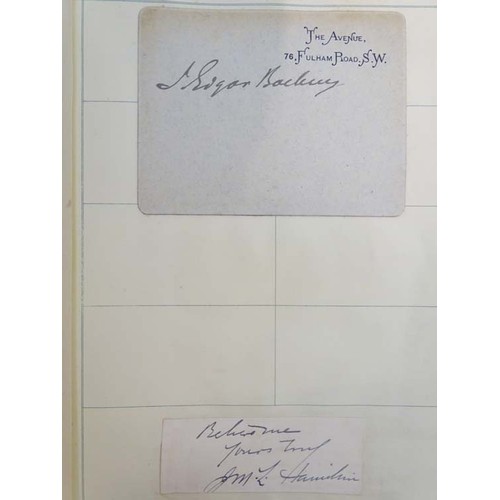 The Avenue,
76, Fulham Road, S.W.
J Edgar Boehm
Believe me
Yours truly
J McL Hamilton